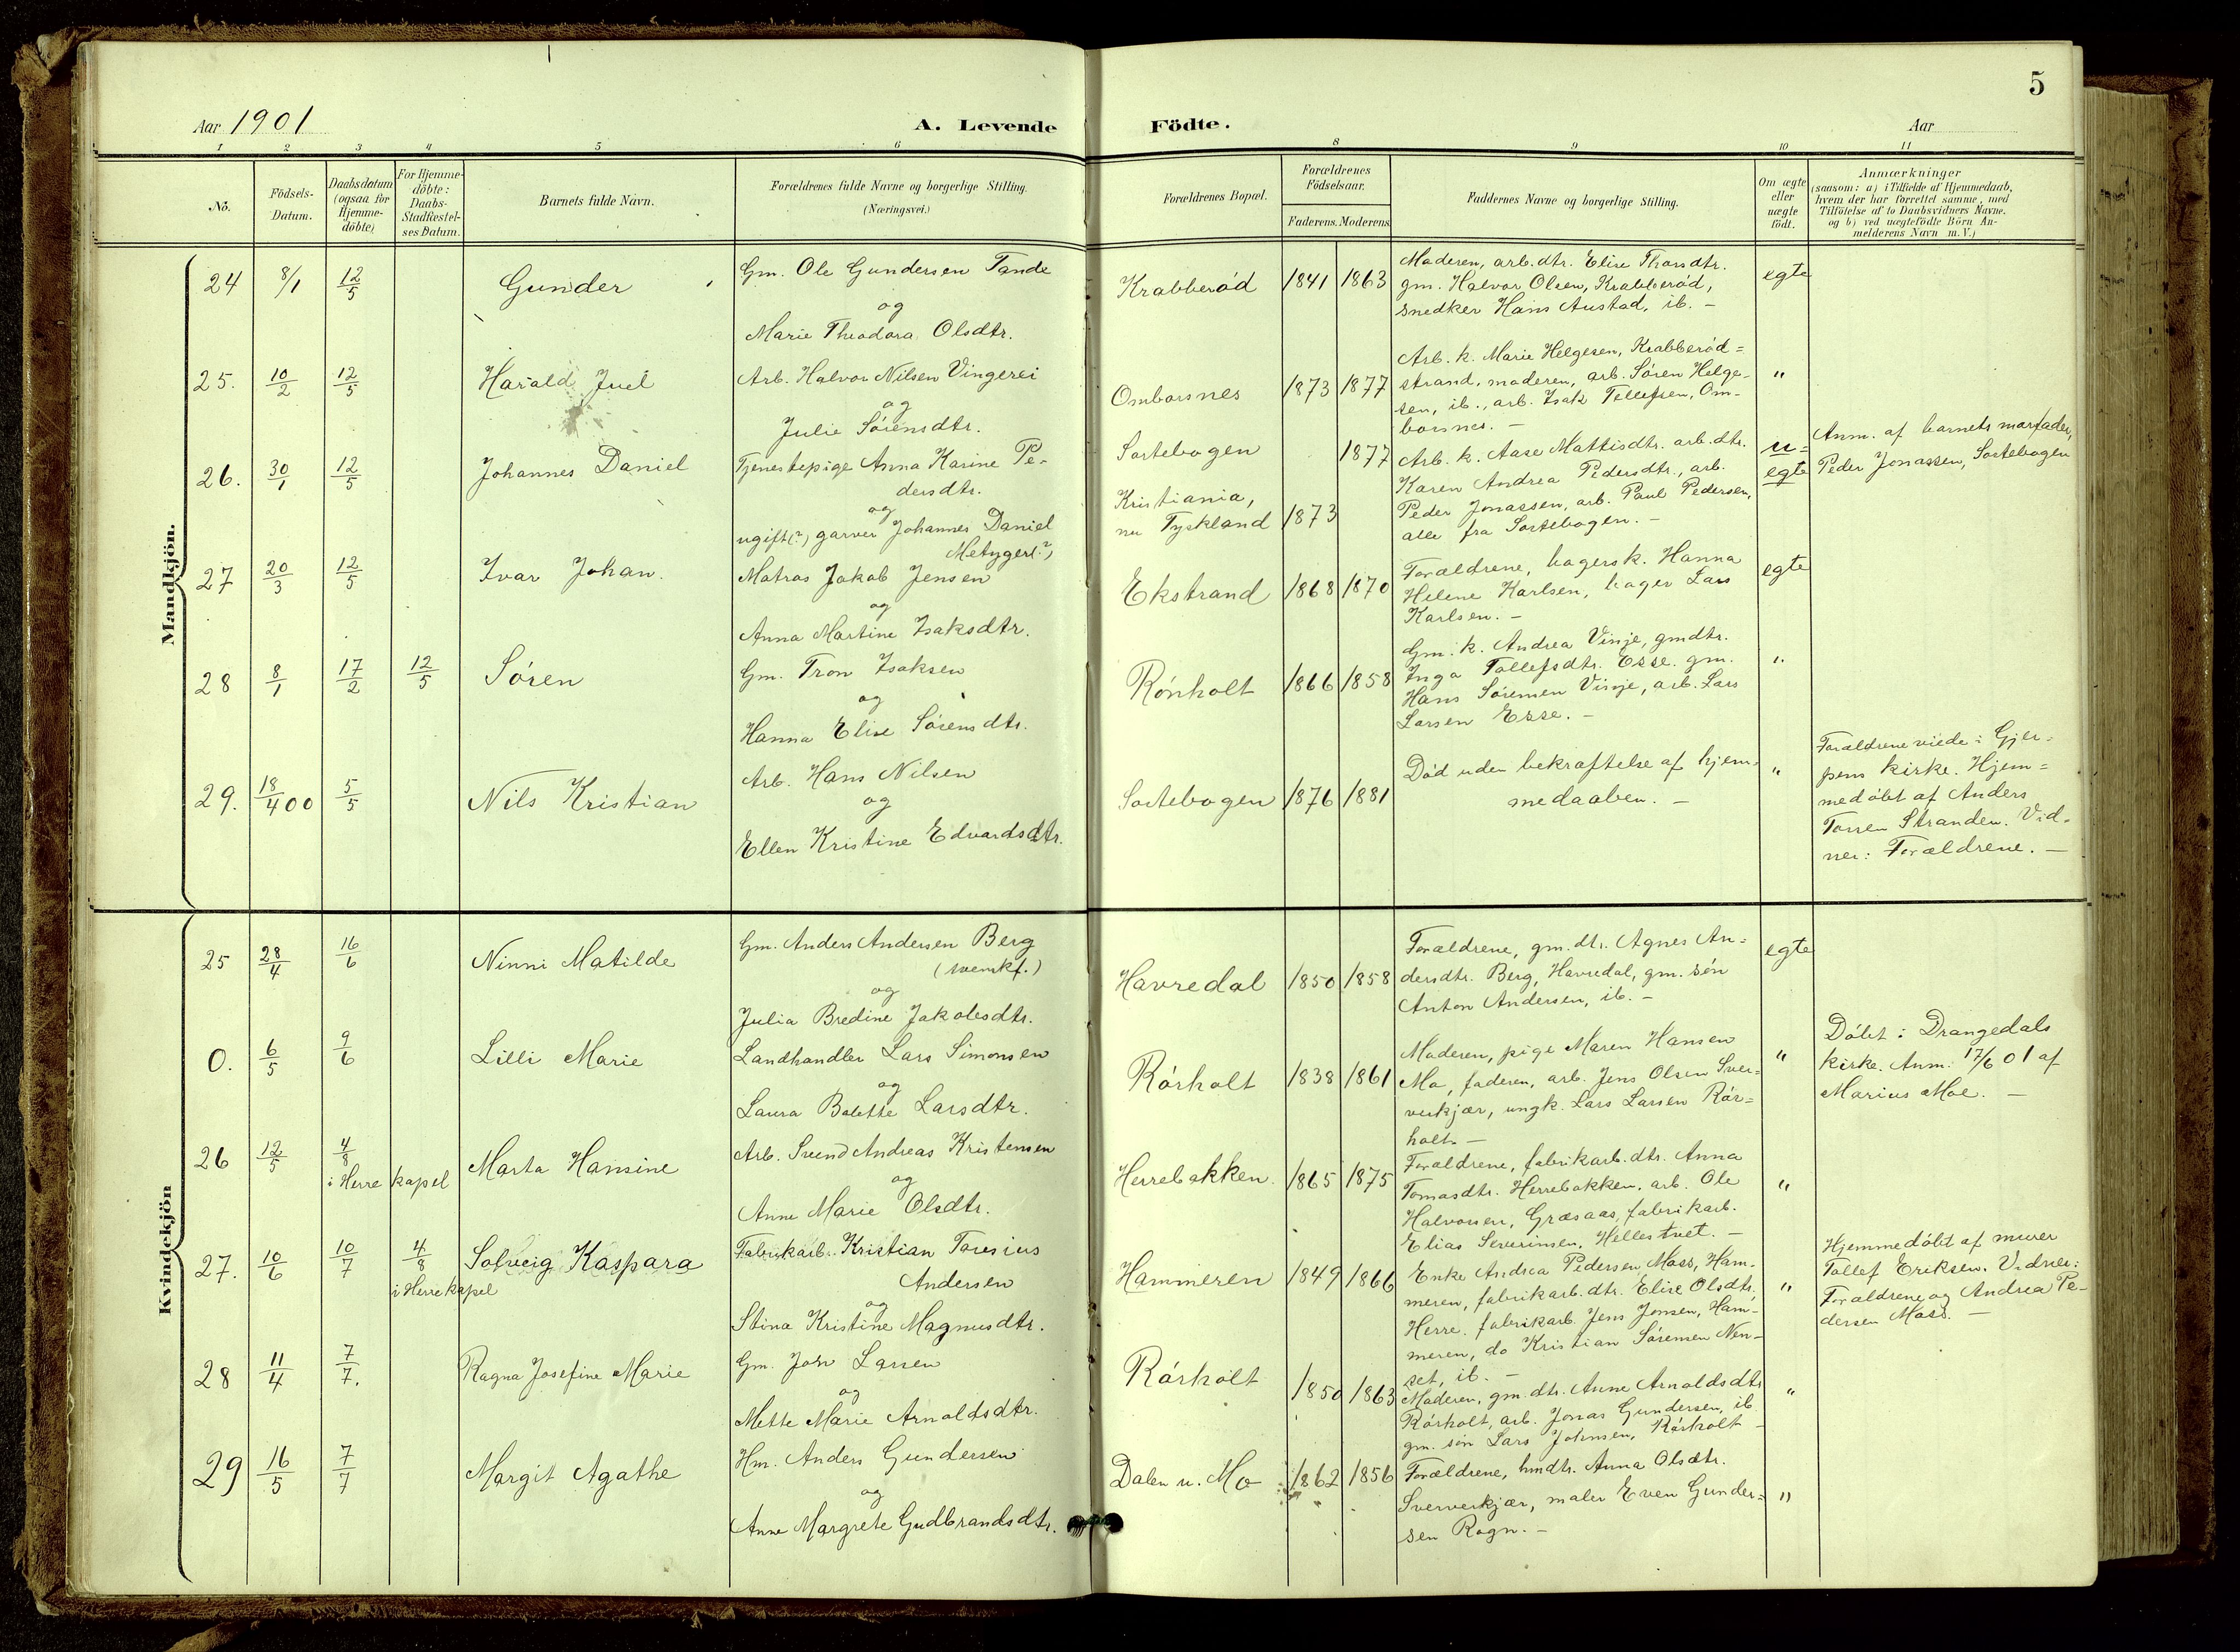 5
Aar 1901
A. Levende Födte.
Aar
1 2 3 4 5 6 8 9 10 11
No.
Födsels-
Datum.
Daabsdatum
(ogsaa for
Hjemme-
döbte)
For Hjemme-
döbte:
Daabs-
Stadfæstel-
ses Datum.
Barnets fulde Navn.
Forældrenes fulde Navne og borgerlige Stilling.
(Næringsvei.)
Forældrenes Bopæl.
Forældrenes
Födselsaar.
Faderens. Moderens
Faddernes Navne og borgerlige Stilling.
Om ægte
eller
uægte
födt.
Anmærkninger
(saasom: a) i Tilfælde af Hjemmedaab,
hvem der har forrettet samme, med
Tilföielse af to Daabsvidners Navne.
og b) ved uægtefödte Börn An-
melderens Navn m. V.)
Mandkjön.
24 8/1 12/5
Gunder
Gm. Ole Gundersen Tande
og
Marie Theodora Olsdtr.
Krabberød 1841 1863
Moderen, arb.dtr. Elise Thorsdtr.
gm. Halvor Olsen, Krabberød,
snedker Hans Austad, ib. -
egte
25. 10/2 12/5
Harald Juel
Arb. Halvor Nilsen Vingerei
og
Julie Sørensdtr.
Omborsnes 1873 1877
Arb. k. Marie Helgesen, Krabberød=
strand, moderen, arb. Søren Helge-
sen, ib., arb. Isak Tellefsen, Om-
borsnes. -
"
26. 30/1 12/5
Johannes Daniel
Tjenestepige Anna Karine Pe-
dersdtr.
og
ugift(?) garver Johannes Daniel
Metyger(?)
Sortebogen 1877
Kristiania,
nu Tyskland 1873
Arb. k. Aase Mattisdtr. arb. dtr.
Karen Andrea Pedersdtr., arb.
Peder Jonassen, arb. Paul Pedersen,
alle fra Sortebogen. -
u=
egte
Anm. af barnets morfader,
Peder Jonassen, Sortebogen
27 20/3 12/5
Ivar Johan.
Matros Jakob Jensen
og
Anna Martine Isaksdtr.
Ekstrand 1868 1870
Forældrene, bagersk. Hanna
Helene Karlsen, bager Lars
Karlsen. -
egte
28 8/1 17/2 12/5
Søren
Gm. Tron Isaksen
og
Hanna Elise Sørensdtr.
Rønholt 1866 1858
Gm. k. Andrea Vinje, gmdtr.
Inga Tollefsdtr. Esse. gm.
Hans Sørensen Vinje, arb. Lars
Larsen Esse. -
"
29. 18/4 00 5/5
Nils Kristian
Arb. Hans Nilsen
og
Ellen Kristine Edvardsdtr.
Sortebogen 1876 1881
Død uden bekræftelse af hjem-
medaaben. -
"
Forældrene viede i Gjer-
pens kirke. Hjem=
medøbt af Anders
Torsen Stranden. Vid-
ner: Forældrene. -
Kvindekjön
25 28/4 16/6
Ninni Matilde
Gm. Anders Andersen Berg
(svensk f.)
og
Julia Bredine Jakobsdtr.
Havredal 1850 1858
Forældrene, gm. dtr. Agnes An=
dersdtr. Berg, Havredal, gm. søn
Anton Andersen, ib. -
egte
0. 6/5 9/6
Lilli Marie
Landhandler Lars Simonsen
og
Laura Bolette Larsdtr.
Rørholt 1838 1861
Moderen, pige Maren Hansen
Mo, faderen, arb. Jens Olsen Sver-
verkjær, ungk. Lars Larsen Rør=
holt. -
"
Døbt i Drangedals
kirke. Anm. 17/6 01 af
Marius Moe. -
26 12/5 4/8
i Herre kapel
Marta Hansine
Arb. Svend Andreas Kristensen
og
Anne Marie Olsdtr.
Herrebakken. 1865 1875
Forældrene, fabrikarb. dtr. Anna
Tomasdtr. Herrebakken. arb. Ole
Halvorsen, Græsaas, fabrikarb.
Elias Severinsen, Hellestvet. -
"
27. 10/6 10/7 4/8
i Herre kapel
Solveig Kaspara
Fabrikarb. Kristian Toresius
Andersen
og
Stina Kristine Magnusdtr.
Hammeren 1849 1866
Enke Andrea Pedersen Moss, Ham-
meren, fabrikarb. dtr. Elise Olsdtr.
Herre. fabrikarb. Jens Jonsen, Ham-
meren, do Kristian Sørensen Nen-
set, ib. -
"
Hjemmedøbt af murer
Tollef Eriksen. Vidner:
Forældrene og Andrea Pe-
dersen Moss. -
28 11/4 7/7.
Ragna Josefine Marie
Gm. John Larsen
og
Mette Marie Arnoldsdtr.
Rørholt 1850 1863
Moderen, gm. dtr. Anne Arnoldsdtr
Rørholt, arb. Jonas Gundersen, ib
gm. søn Lars Johnsen, Rørholt -
"
29 16/5 7/7
Margit Agathe
Hm. Anders Gundersen
og
Anne Margrete Gudbrandsdtr.
Dalen u. Mo 1862 1856
Forældrene, hmdtr. Anna Olsdtr.
Sververkjær, maler Even Gunder=
sen Rogn. -
"